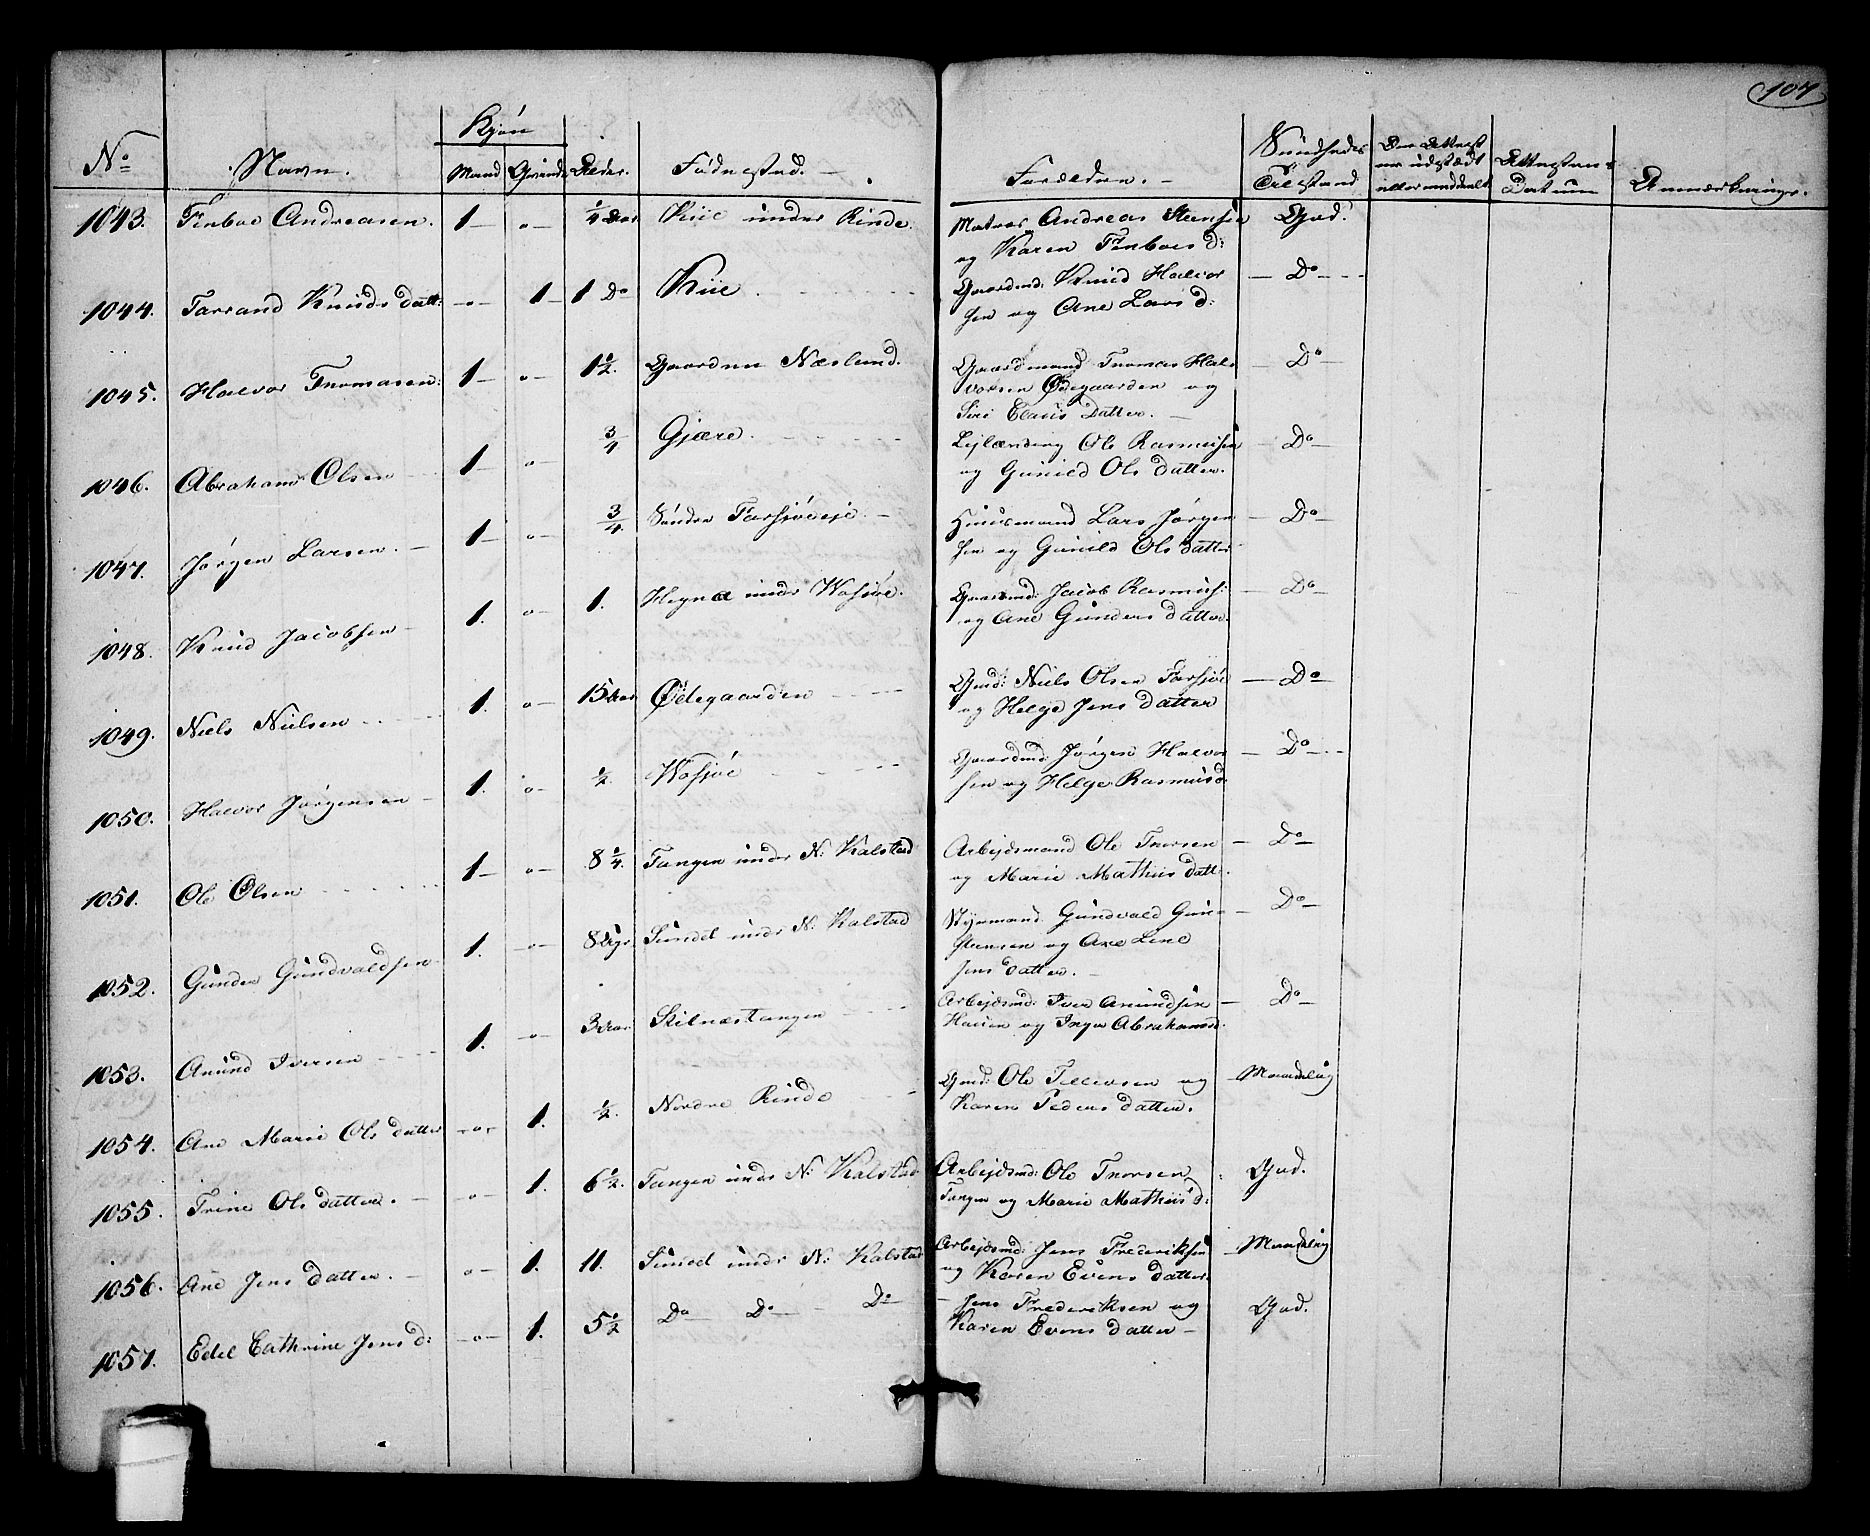 107
No Navn. Kjön Mand Qvinde Alder. Födested. Forældre. Sundheds Tilstand Om Attest er udstædt eller meddeelt Attestens Datum Anmærkninger.
1043. Finboe Andreasen. 1 o 1/4 Aar Kiie under Rinde. Matros Andreas Steensen God.
og Karen Finboes d:
1044. Tarrand Knudsdatt: o 1 1 Do Kiie. Gaardmd: Knud Halvor Do
sen og Ane Lars d:
1045. Halvor Thomasen. 1 o 1 1/2. Gaarden Næslund. Gaardmand Thomas Hal Do
vorsen Ødegaarden og
Siri Claus datter.
1046. Abraham Olsen 1 o 3/4 Gjære. Lejlænding Ole Rasmussen Do
og Gunild Ols datter.
1047. Jörgen Larsen. 1 o 3/4 Söndre Farsjöeje. Huusmand Lars Jörgen Do
sen og Gunild Ols datter
1048. Knud Jacobsen 1. o 1. Hegna under Wasjöe. Gaardmd: Jacob Rasmuss: Do
og Ane Gunders datter.
1049. Niels Nielsen 1. o 15 Aar Ødegaarden Gmd: Niels Olsen Farsjöe Do
og Helge Jens datter
1050. Halvor Jörgensen 1. o 1/2 Wasjöe Gaardmd: Jörgen Halvor Do
sen og Helge Rasmusd.
1051. Ole Olsen 1 o 8 1/4. Tangen under N: Kalstad Arbejdsmand Ole Thorsen Do
og Marie Mathiis datt.
1052. Gunder Gundvaldsen 1. o 8 Ugr. Sundet under N: Kalstad Styrmand Gundvald Gun Do
stensen og Ane Lene
Jens datter.
1053. Anund Iversen 1. o 3 Aar Skilnæstangen Arbejdsmd: Iver Anundsen Do
Hauen og Inger Abrahamsd.
1054. Ane Marie Ols datter o 1. 1/2. Nordre Rinde Gmd: Ole Tellevsen og Maadelig
Karen Peders datter.
1055. Trine Ols datter. o 1. 6 1/2. Tangen under N: Kalstad Arbejdsmd: Ole Thorsen God.
Tangen og Marie Mathiis d:
1056. Ane Jens datter. o 1. 11. Sundet under N: Kalstad Arbejdsmd: Jens Frederiksen Maadelig
og Karen Evens datter.
1057. Edel Cathrine Jens d: o 1. 5 1/2 Do Do Do Jens Frederiksen og God.
Karen Evens datter